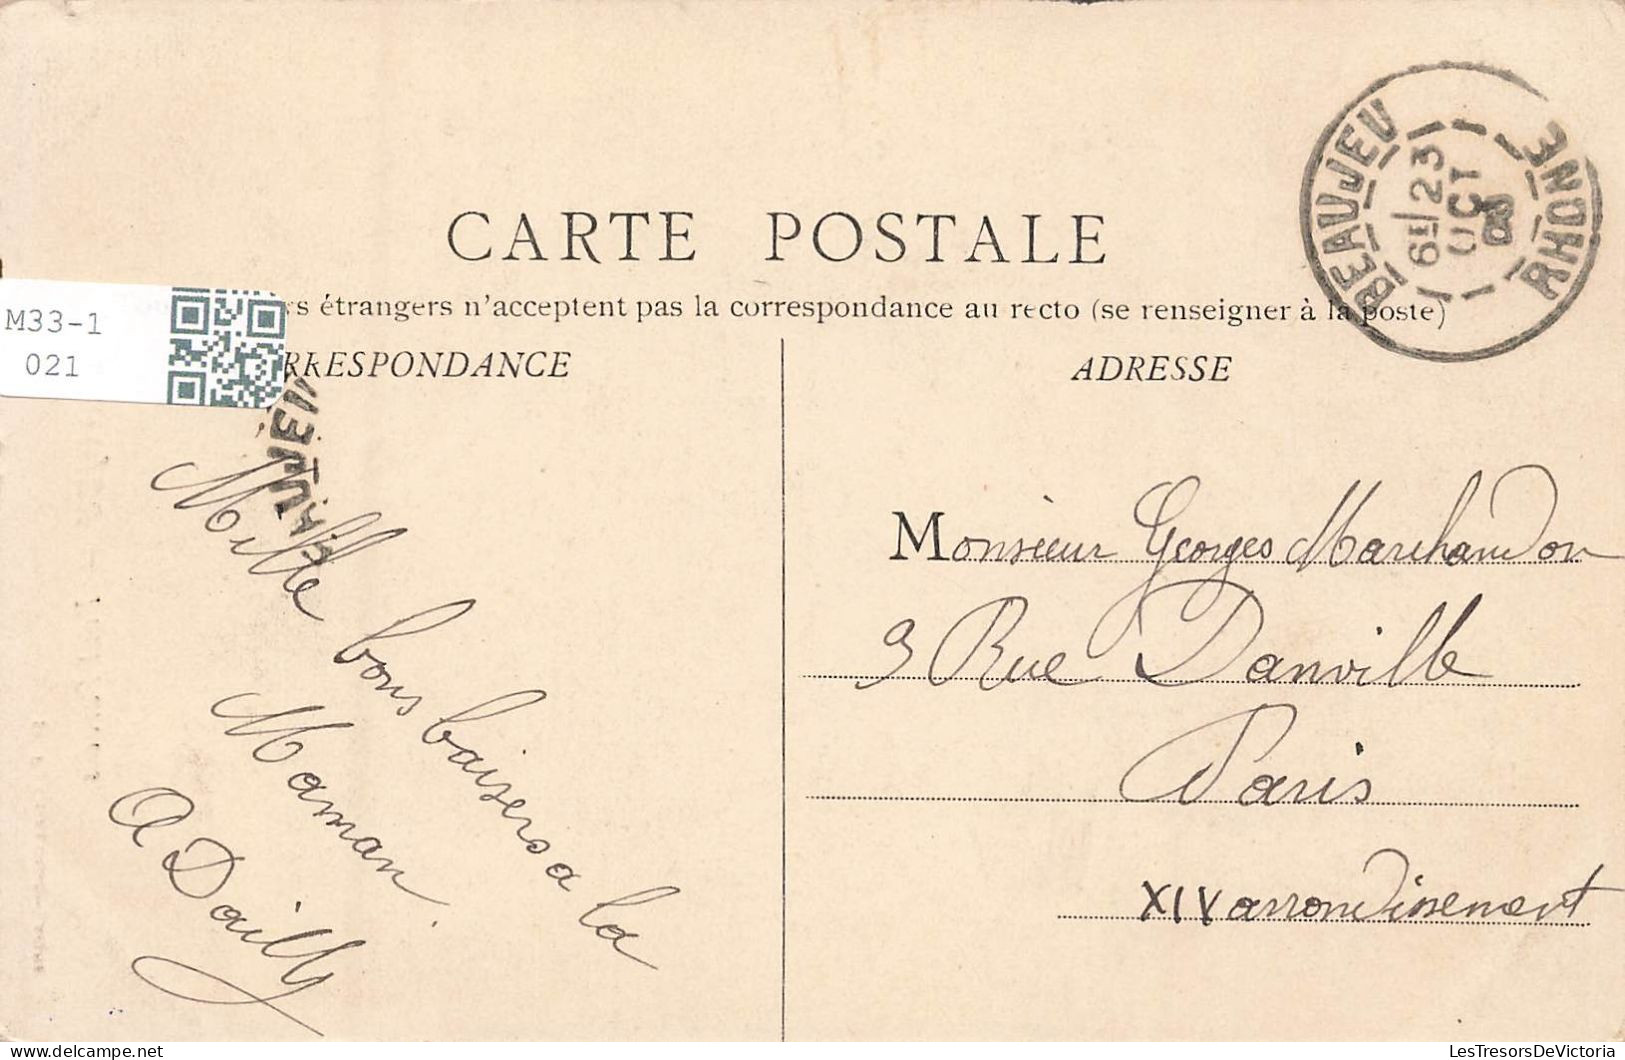 CARTE POSTALE
s étrangers n'acceptent pas la correspondance au recto (se renseigner à la poste)
RRESPONDANCE
ADRESSE
M33-1
021
BEAUJEU
RHONE
6E 23
OCT
08
AUJEU
Mille bons baisers a la
Maman.
A Dailly
Monsieur Georges Marchandon
9 Rue Danville
Paris
XIV arrondissement
LesTresorsDeVictoria